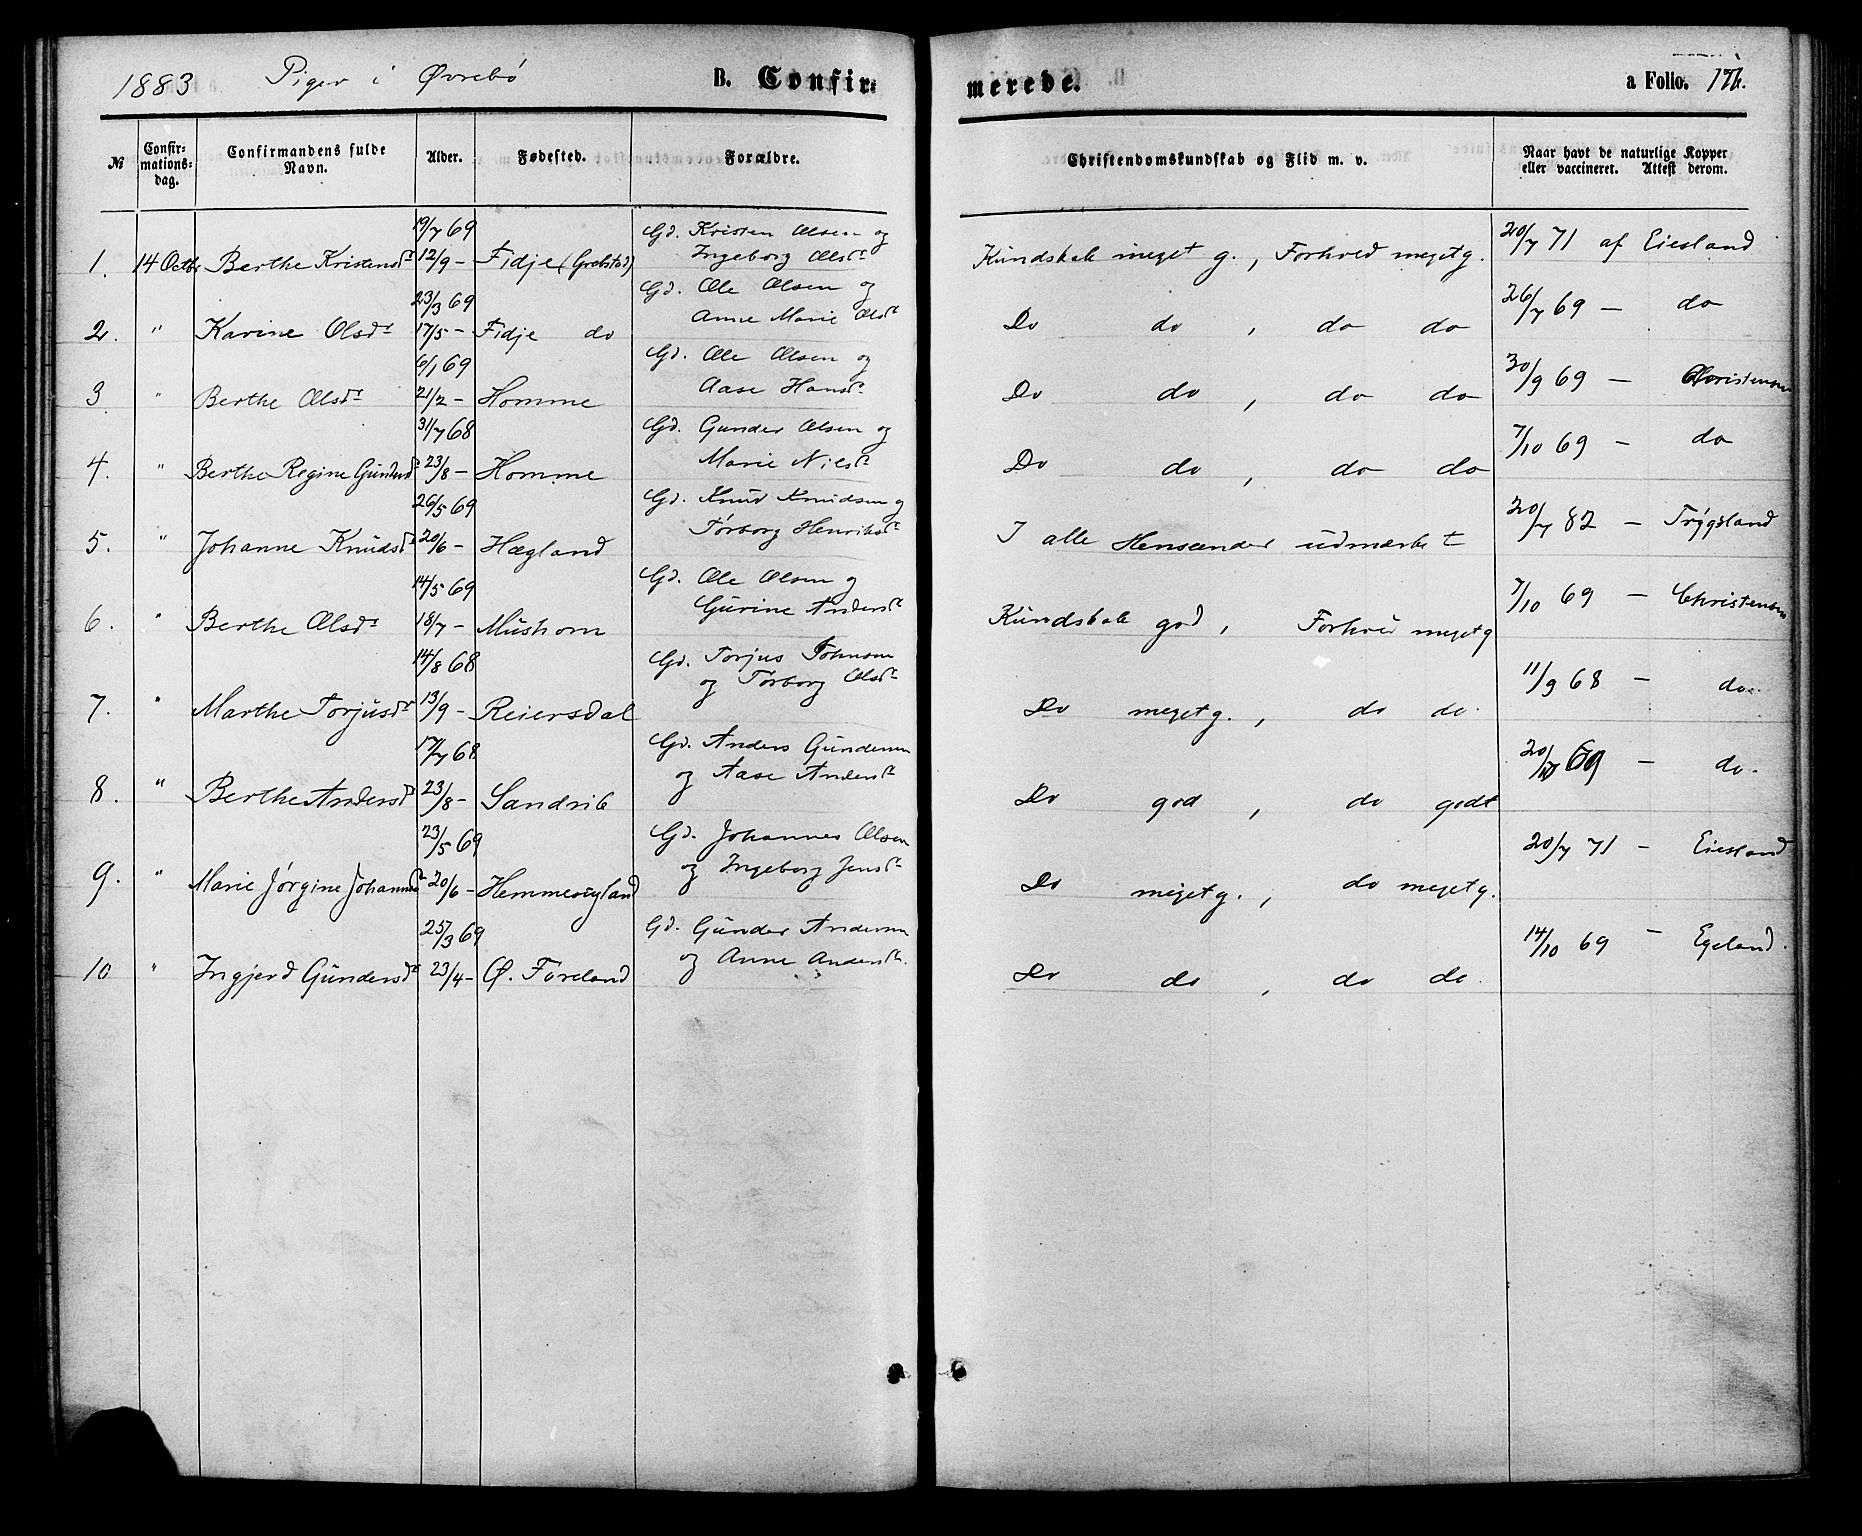 1883 Piger i Øvrebø B. Confir= merede. a Folio. 176.
№ Confir-mations-dag. Confirmandens fulde Navn. Alder. Fødested. Forældre. Christendomskundskab og Flid m. v. Naar havt de naturlige Kopper eller vaccineret. Attest derom.
19/7 69 Gd. Kristen Olsen og
1. 14 Octbr Berthe Kristensdt 12/9 - Fidje (Grebstad) Ingeborg Olsdt Kundskab meget g., Forhold megetg. 20/7 71 af Eiesland
23/3 69 Gd. Ole Olsen og
2. " Karine Olsdt 17/5 - Fidje do Anne Marie Olsdt Do do, do do 26/7 69 - do
6/1 69 Gd. Ole Olsen og
3 " Berthe Olsdt 21/2 - Homme Aase Hansdt Do do, do do 30/9 69 - Christensen
31/7 68 Gd. Gunder Olsen og
4. " Berthe Regine Gundersdt 23/8 - Homme Marie Nilsdt Do do, do do 7/10 69 - do
26/5 69 Gd. Knud Knudsen og
5. " Johanne Knudsdt 20/6 - Hægland Torborg Henriksdt I alle Henseender udmærket 20/7 82 - Trygsland
14/5 69 Gd. Ole Olsen og
6. " Berthe Olsdt 18/7 - Mushom Gurine Andersdt Kundskab god, Forhold megetg 7/10 69 - Christensen
14/8 68 Gd. Torjus Johnsen
7. " Marthe Torjusdt 13/9 - Reiersdal og Torborg Olsdt Do megetg., do do. 11/9 68 - do.
17/7 68 Gd. Anders Gundersen
8. " Berthe Andersdt 23/8 - Sandrib og Aase Andersdt Do god, do godt 69 - do.
23/5 69 Gd. Johannes Olsen
9. " Marie Jørgine Johannesdt 20/6 - og Ingeborg Jensdt Do megetg., do megetg. 20/7 71 - Eiesland
25/3 69 Gd. Gunder Andersen
10 " Ingjerd Gundersdt 23/4 - Ø. Føreland og Anne Andersdt. Do do, do do. 14/10 69 - Egeland.